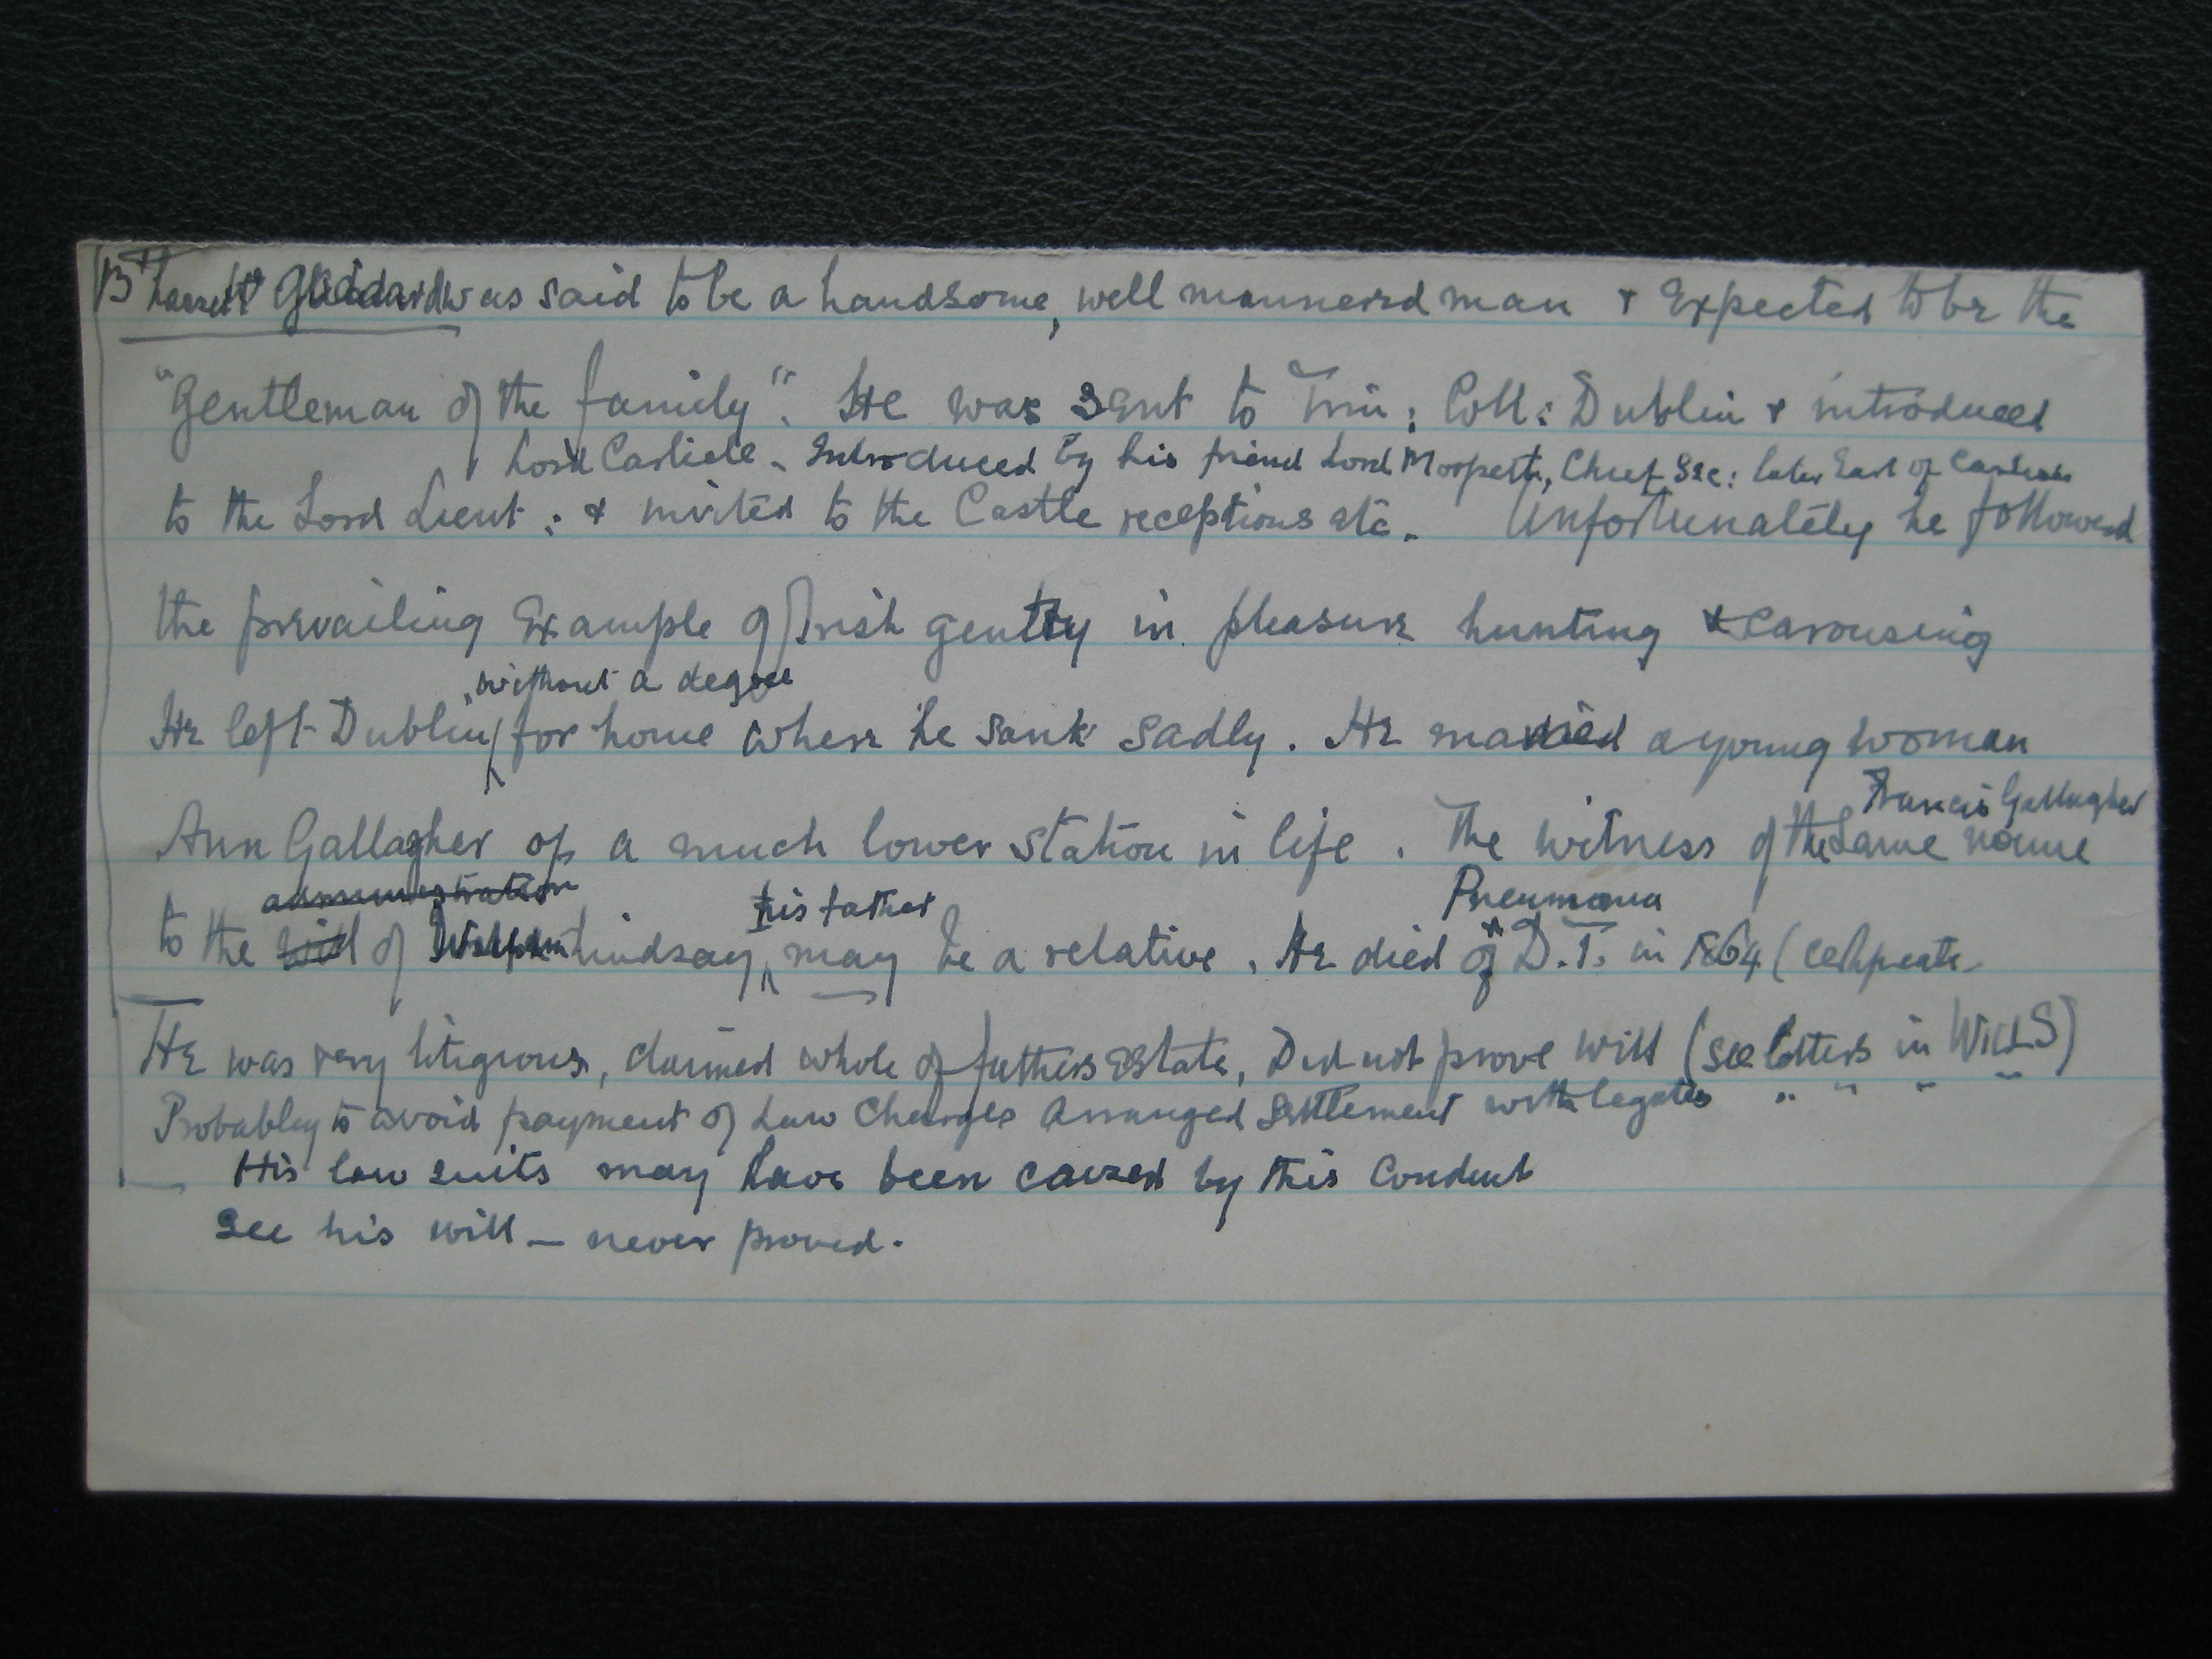 Goddard was said to be a handsome, well mannered man & Expected to be the
"Gentleman of the family". He was sent to Trin: Coll: Dublin & introduced
Lord Carlisle. Introduced by his friend Lord Morpeth, Chief Sec: later Earl of Carlisle
to the Lord Lieut: & invited to the Castle receptions etc. Unfortunately he followed
the prevailing Example of Irish gentry in pleasure hunting & carousing
without a degree
He left Dublin for home where he sank sadly. He married a young woman
Francis Gallagher
Ann Gallagher of a much lower station in life. The witness of the same name
administration his father Pneumonia
to the will of Lindsay, may be a relative. He died of D.T. in 1864 (
He was very litigious, claimed whole of fathers Estate, Did not prove will (see letters in WILLS)
Probably to avoid payment of Law Charges Arranged Settlement with legatees " " " "
His law suits may have been caused by this Conduct
See his will - never proved.